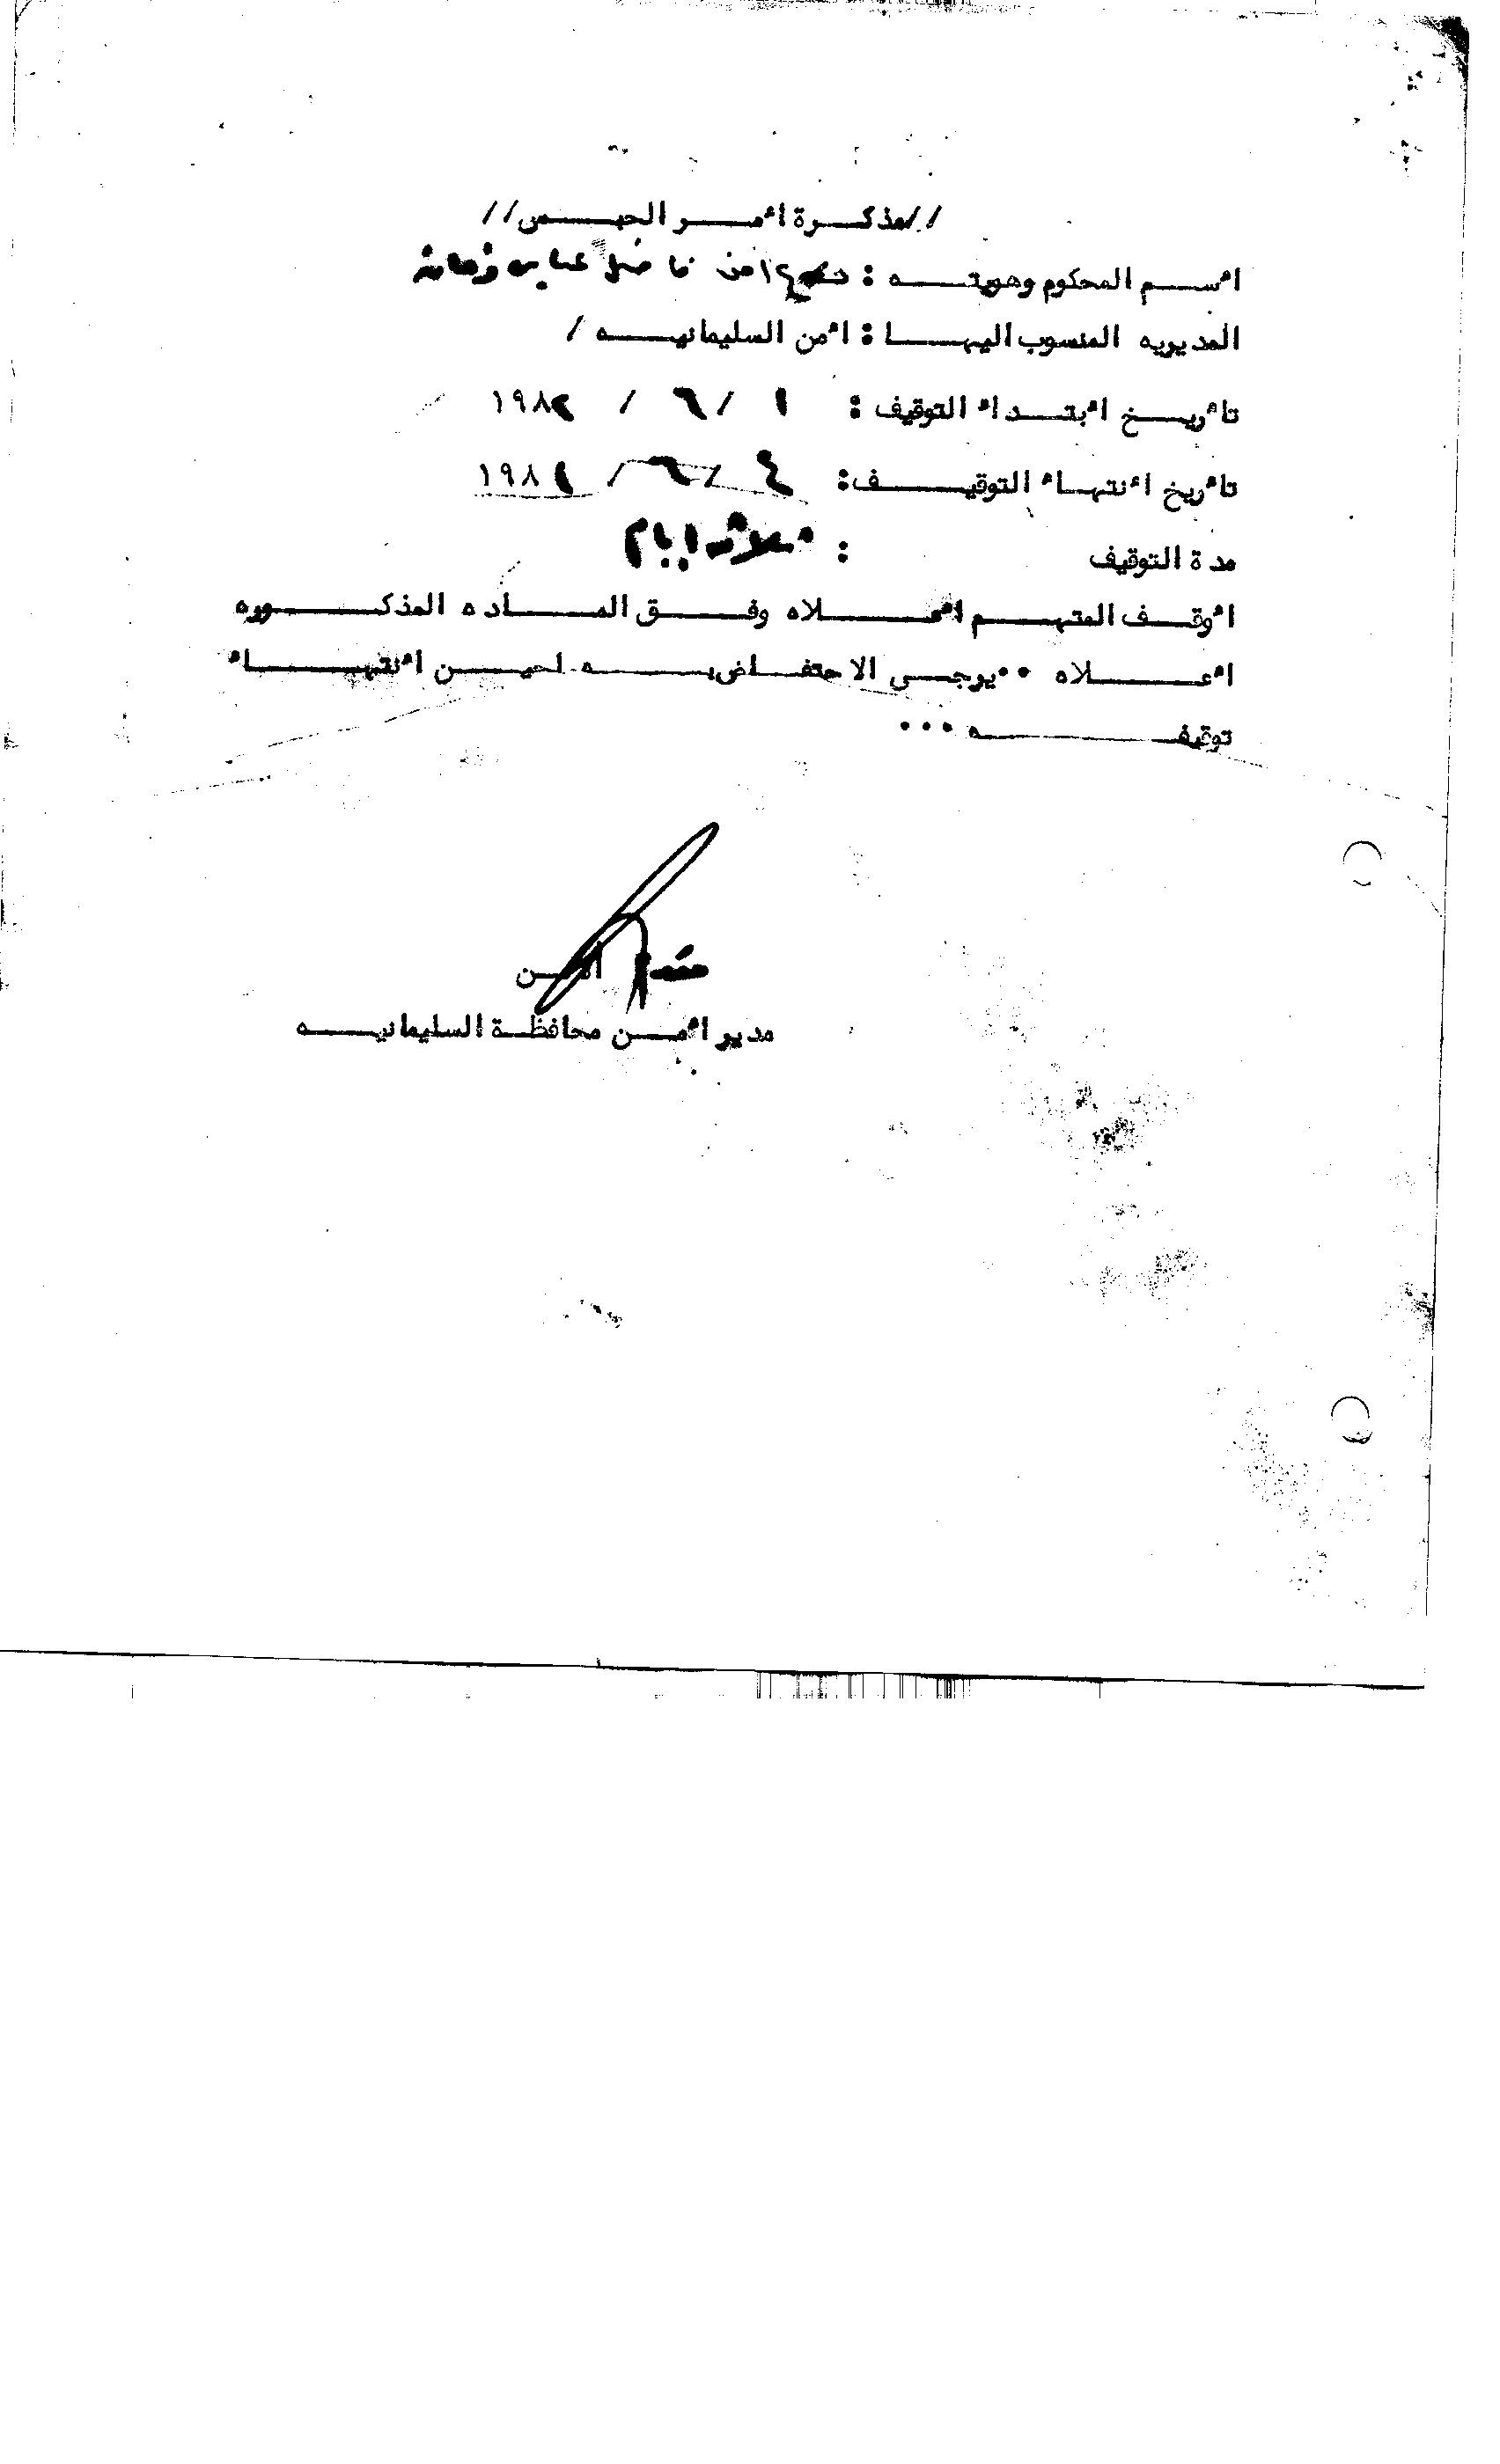 //مذكرة أمر الحبس//
أسم المحكوم وهويته : امن فاضل عباس
المديريه المنسوب اليها : أمن السليمانيه /
تأريخ أبتداء التوقيف : ١ / ٦ / ١٩٨٢
تأريخ أنتهاء التوقيف : ٤ / ٦ / ١٩٨
مدة التوقيف : ثلاثه ايام
أوقف المتهم أعلاه وفق الماده المذكوره
أعلاه ٠٠ يوجى الاحتفاض به لحين أنتهاء
توقيفه ٠٠٠
أمن
مدير أمن محافظة السليمانيه